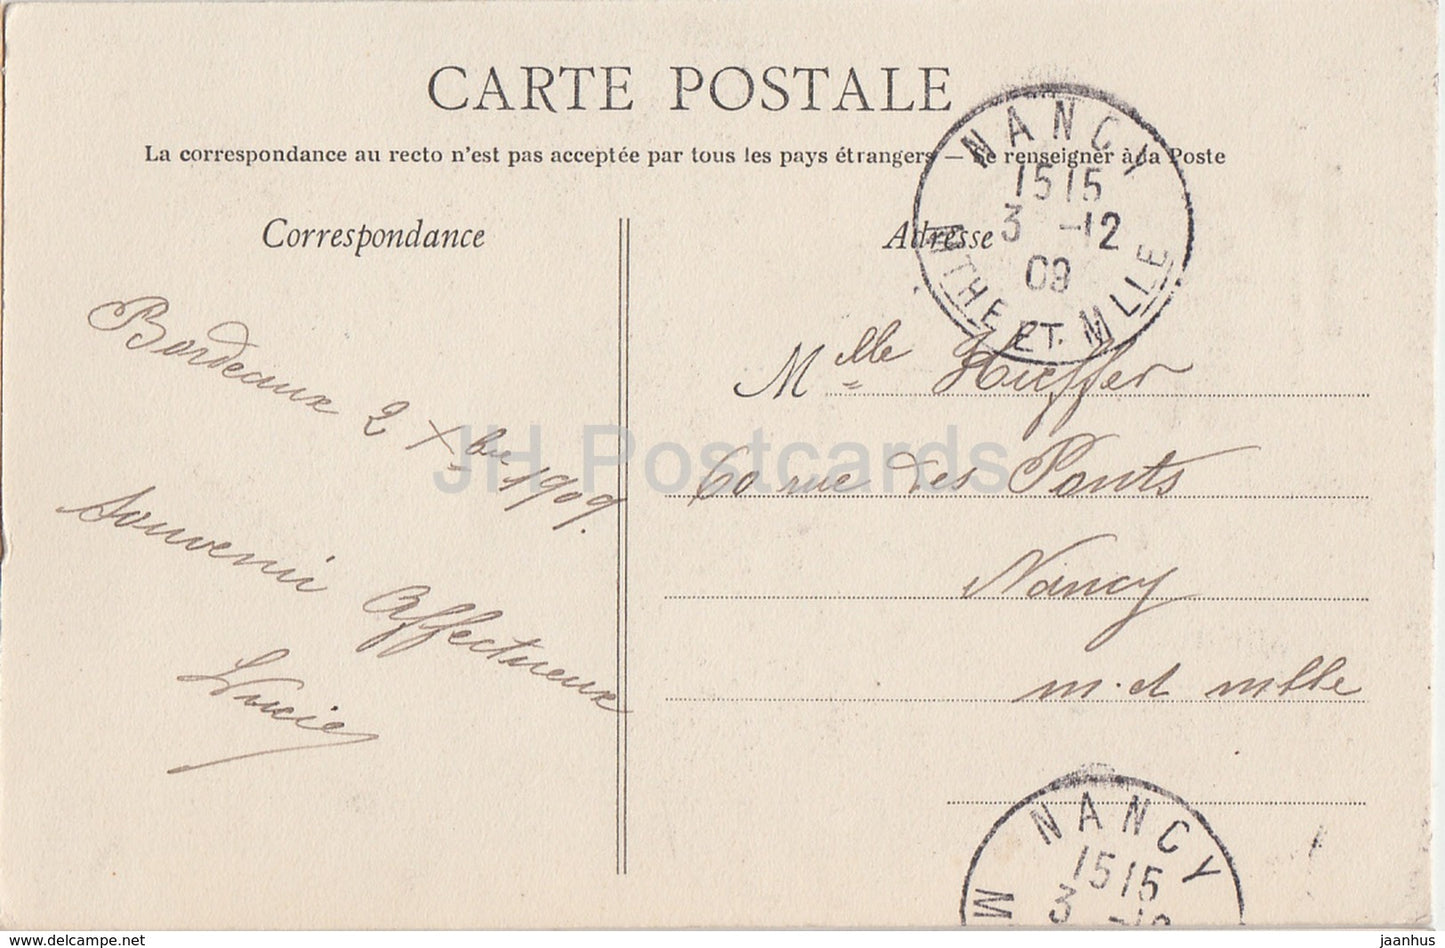 CARTE POSTALE
La correspondance au recto n'est pas acceptée par tous les pays étrangers — Se renseigner à la Poste
Correspondance
Bordeaux 2 Xbre 1909.
Souvenir Affectueux
Lucie
Adresse
Mlle Kieffer
60 rue des Ponts
Nancy
m. et mlle
NANCY
15 15
3 -12
09
MTHE ET MLLE
NANCY
15 15
3 -12
M
JH Postcards
delcampe.net
jaanhus